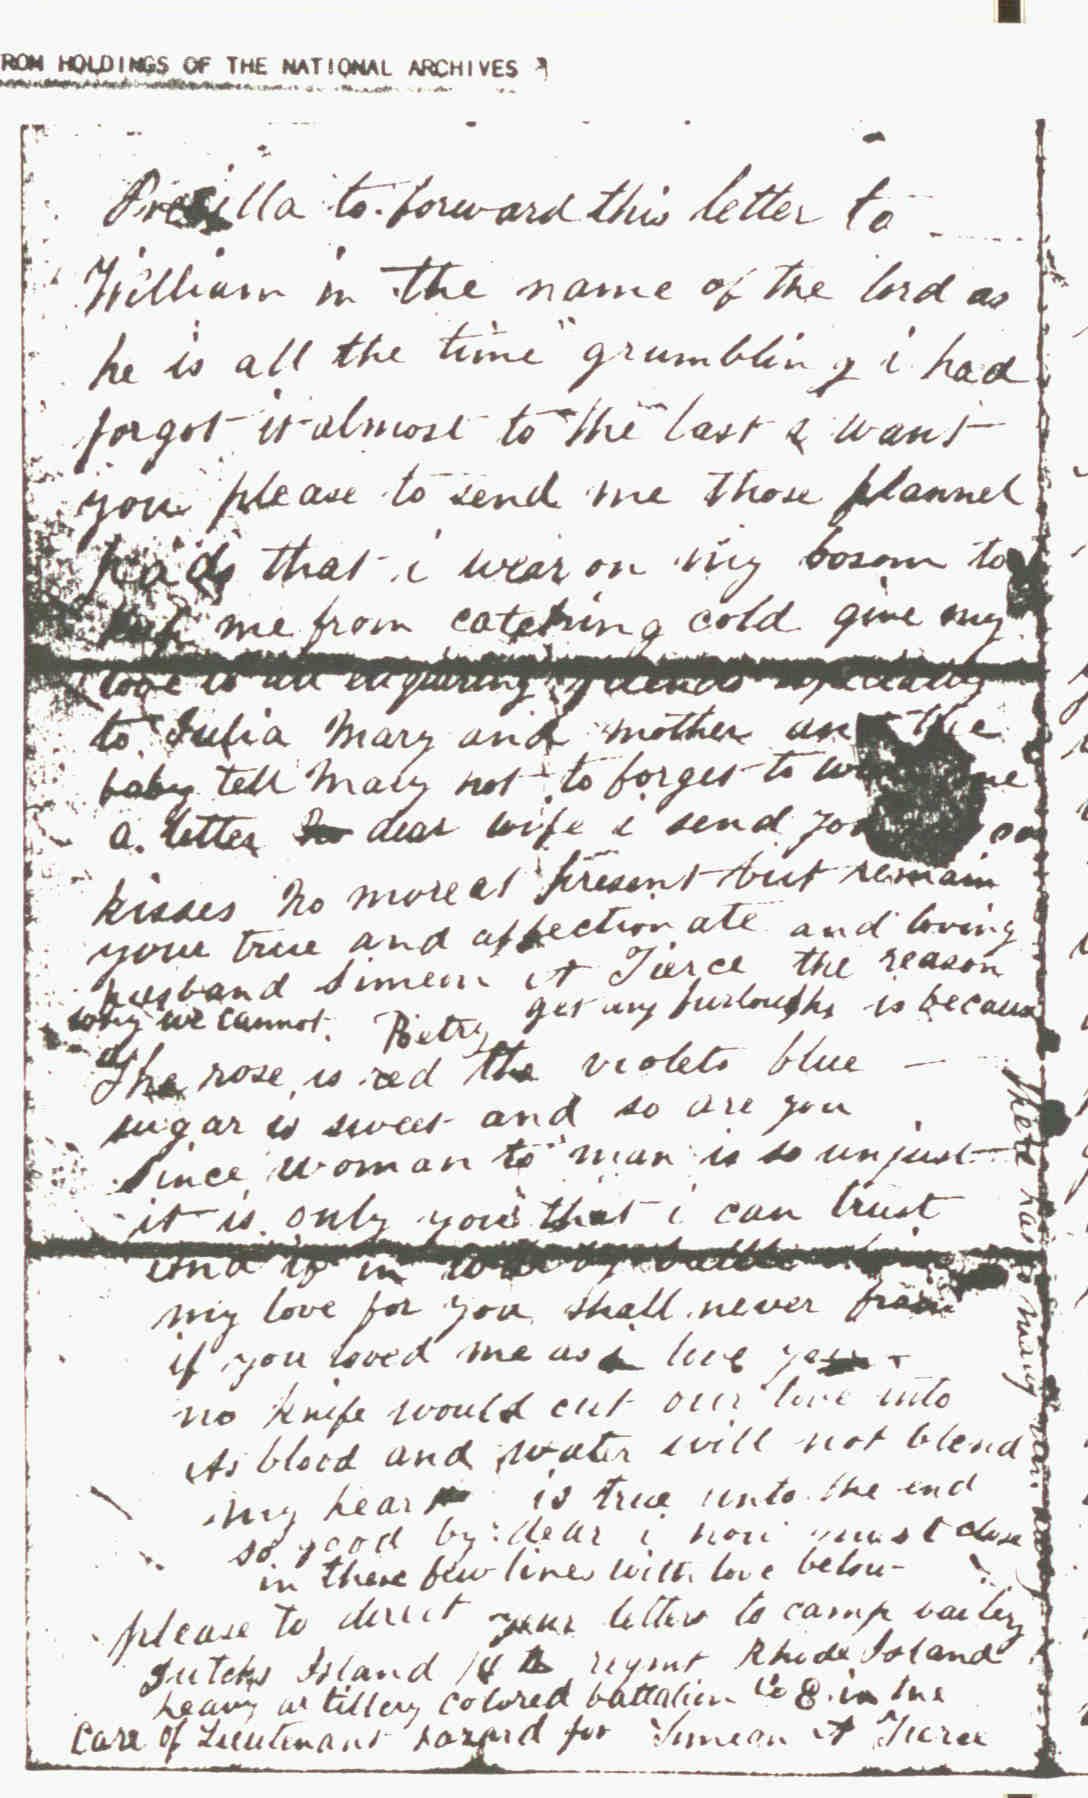 ROM HOLDINGS OF THE NATIONAL ARCHIVES
Precilla to forward this letter to
William in the name of the lord as
he is all the time grumbling i had
forgot it almost to the last i want
you please to send me those flannel
pads that i wear on my bosom to
me from catching cold give my
love to all enquiring friends especially
to Julia Mary and mother and the
baby tell Mary not to forget to me
a letter dear wife i send you
kisses no more at present but remain
your true and affectionate and loving
husband Simeon A Tierce the reason
why we cannot get any furloughs is because
Poetry
The rose is red the violets blue
sugar is sweet and so are you
Since woman to man is so unjust
it is only you that i can trust
and if in battle
my love for you shall never
if you loved me as i love you
no knife would cut our love into
As blood and water will not blend
my heart is true unto the end
so good by dear i now must close
in these few lines with love below
please to direct your letters to camp bailey
Dutchs Island 14 th regmt Rhode Island
heavy artillery colored battalion Co in the
Care of Lieutenant hazard for Simeon A Tierce
there has so many ran away